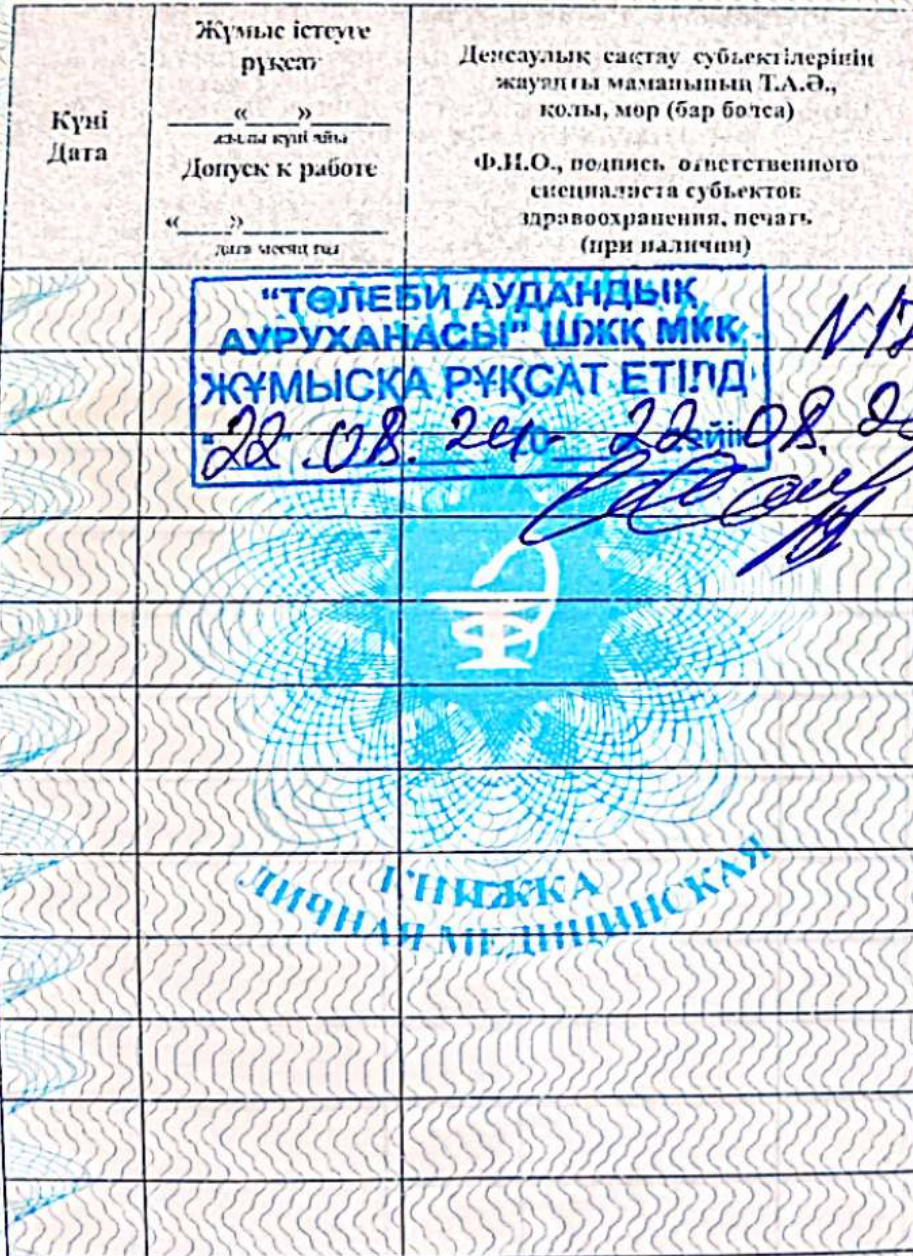 Күні
Дата
Жұмыс істеуге
рұқсат
«___»
жылы күні айы
Допуск к работе
«___»
дата месяц год
Денсаулық сақтау субьектілерінің
жауапты маманының Т.А.Ә.,
қолы, мөр (бар болса)
Ф.И.О., подпись ответственного
специалиста субьектов
здравоохранения, печать
(при наличии)
"ТӨЛЕБИ АУДАНДЫҚ
АУРУХАНАСЫ" ШЖҚ МКК
ЖҰМЫСҚА РҰҚСАТ ЕТІЛД
22.08.24 - 22.08.
КНИЖКА
ЛИЧНАЯ МЕДИЦИНСКАЯ